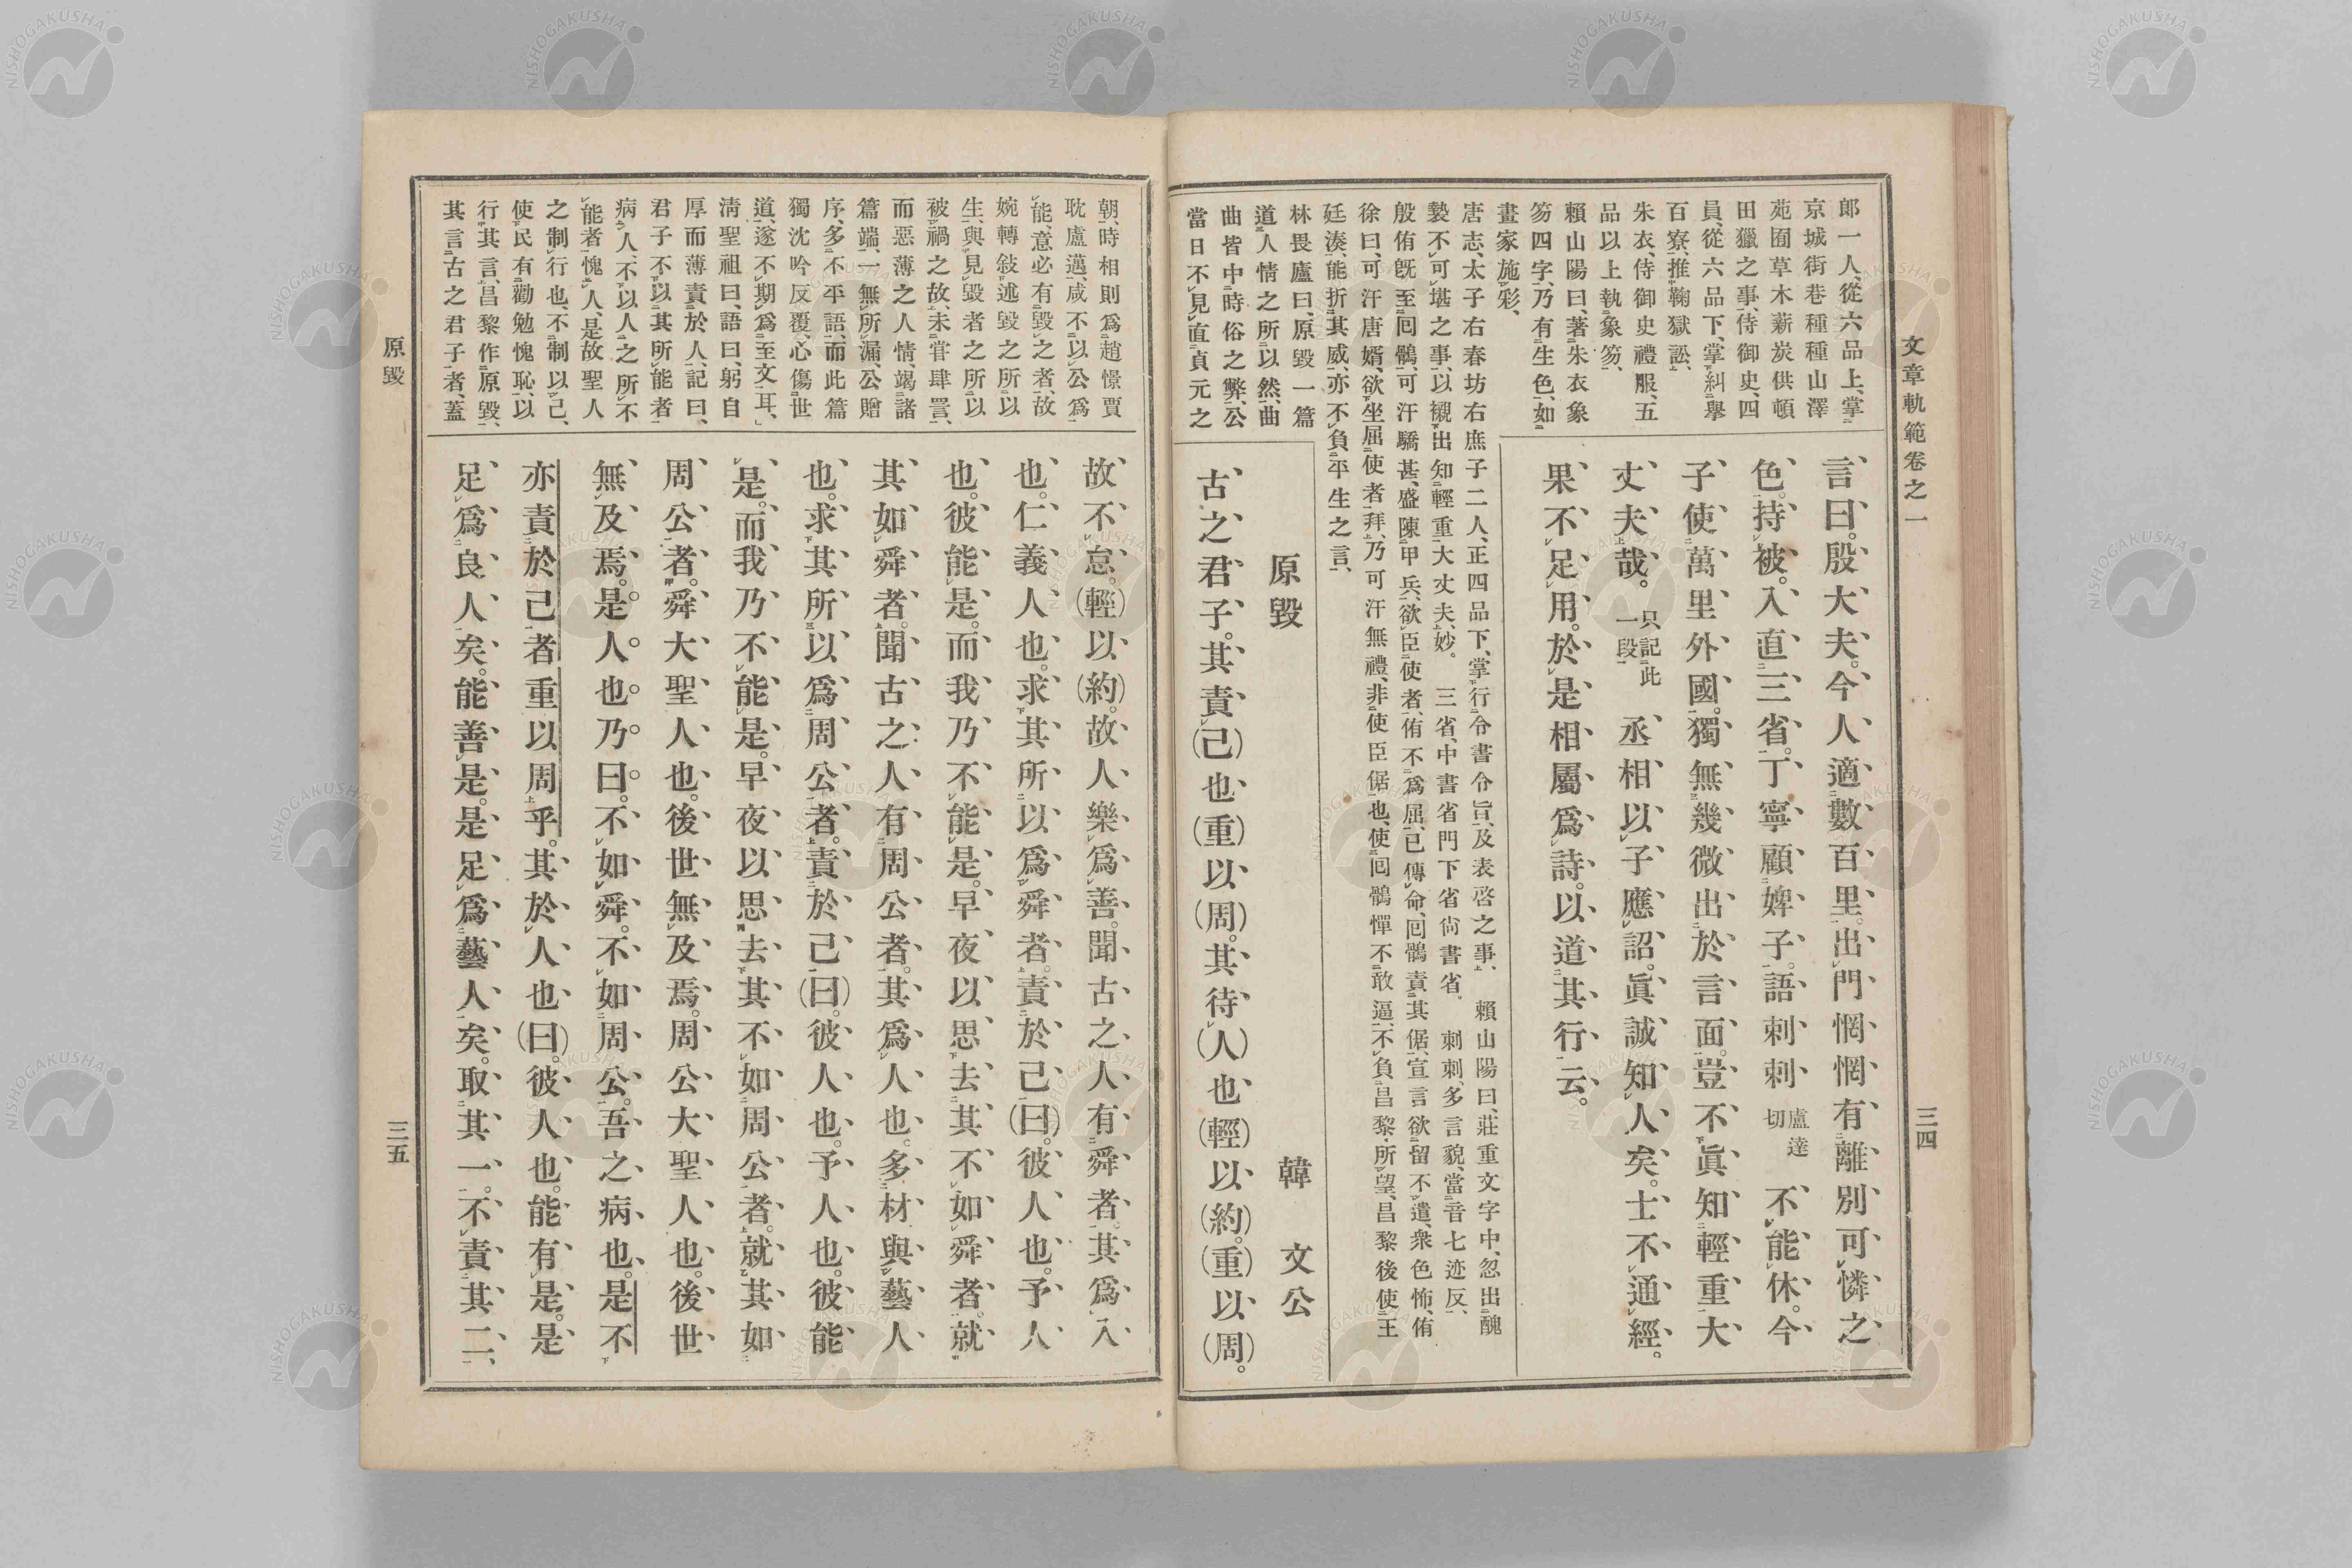 文章軌範卷之一
三四
郞一人、從六品上、掌
京城街巷種種山澤
苑囿草木薪炭供頓
田獵之事、侍御史、四
員、從六品下、掌糾擧
百寮、推鞠獄訟、
朱衣、侍御史禮服、五
品以上執象笏、
賴山陽曰、著朱衣象
笏四字、乃有生色、如
畫家施彩、
言曰。殷大夫。今人適數百里。出門惘惘有離別可憐之
色。持被。入直三省。丁寧顧婢子。語刺刺盧達切不能休。今
子使萬里外國。獨無幾微出於言面。豈不眞知輕重大
丈夫哉。只記此一段丞相以子應詔。眞誠知人矣。士不通經。
果不足用。於是相屬爲詩。以道其行云。
唐志、太子右春坊右庶子二人、正四品下、掌行令書令旨、及表啓之事、賴山陽曰、莊重文字中、忽出醜
褻不可堪之事、以襯出知輕重大丈夫、妙。三省、中書省門下省尙書省。刺刺、多言貌、當音七迹反、
殷侑旣至囘鶻、可汗驕甚、盛陳甲兵、欲臣使者、侑不爲屈、已傳命、囘鶻責其倨、宣言欲留不遣、衆色怖、侑
徐曰、可汗唐婿、欲坐屈使者拜、乃可汗無禮、非使臣倨也、使囘鶻憚不敢逼、不負昌黎所望、昌黎後使王
廷湊、能折其威、亦不負平生之言、
林畏廬曰、原毀一篇
道人情之所以然、曲
曲皆中時俗之弊、公
當日不見直貞元之
原毀
韓文公
古之君子。其責(己)也(重)以(周)。其待(人)也(輕)以(約)。(重)以(周)。
朝、時相則爲趙憬賈
耽盧邁、咸不以公爲
能、意必有毀之者、故
婉轉敍述毀之所以
生、與見毀者之所以
被禍之故、未甞肆詈、
而惡薄之人情、竭諸
篇端、一無所漏、公贈
序、多不平語、而此篇
獨沈吟反覆、心傷世
道、遂不期爲至文耳、
淸聖祖曰、語曰、躬自
厚而薄責於人、記曰、
君子不以其所能者
病人、不以人之所不
能者愧人、是故聖人
之制行也、不制以己、
使民有勸勉愧恥、以
行其言、昌黎作原毀、
其言古之君子者、蓋
故不怠。(輕)以(約)。故人樂爲善。聞古之人有舜者。其爲人
也。仁義人也。求其所以爲舜者。責於己(曰)。彼人也。予人
也。彼能是。而我乃不能是。早夜以思。去其不如舜者。就
其如舜者。聞古之人有周公者。其爲人也。多材與藝人
也。求其所以爲周公者。責於己(曰)。彼人也。予人也。彼能
是。而我乃不能是。早夜以思。去其不如周公者。就其如
周公者。舜大聖人也。後世無及焉。周公大聖人也。後世
無及焉。是人也。乃曰。不如舜。不如周公。吾之病也。是不
亦責於己者重以周乎。其於人也(曰)。彼人也。能有是。是
足爲良人矣。能善是。是足爲藝人矣。取其一。不責其二、
原毀
三五
NISHOGAKUSHA